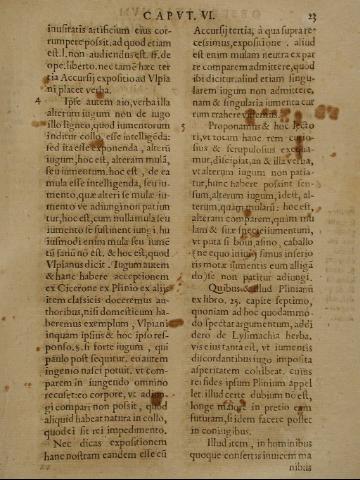 CAPVT. VI.
23
inusitatis artificium eius cor-
rumpere possit. ad quod etiam
est. l. non audendus est. ff. de
ope. liberto. nec tamē hæc ter
tia Accursij expositio ad Vlpia
ni placet verba.
4 Ipse autem aio, verba illa
alterum iugum non de iugo
illo ligneo, quod iumentorum
inditur collo, esse intelligēda:
sed ita esse exponenda, alterū
iugum, hoc est, alteram mulā,
seu iumentum. hoc est, de ea
mula esse intelligenda, seu iu-
mento, quæ alteri se mulæ iu-
mento ve adiungi non patim
tur, hoc est, cum nulla mula seu
iumento se sustinent iungi. hu
iusmodi enim mula seu iumē
tū sanū nō est. & hoc est, quod
Vlpianus dicit. Iugum autem
& hanc habere acceptionem
ex Cicerone ex Plinio ex alijs
item classicis doceremus au-
thoribus, nisi domesticum ha-
beremus exemplum, Vlpiani
inquam ipsius & hoc ipso respo-
nso. §. si forte iugum, qui
paulo post sequitur. eo autem
ingenio nasci potuit. vt com-
parem in iungendo omnino
recuset: eo corpore, vt adiun-
gi compari non possit, quod
aliquid habeat natura in collo,
quod ei sit rei impedimento.
Nec dicas expositionem
hanc nostram eandem esse cū
Accursij tertia; à qua supra re-
cessimus, expositione. aliud
est enim mulam neutra ex par
te comparem admittere, quod
ibi dicitur. aliud etiam singu-
larem iugum non admittere,
nam & singularia iumenta cur
rum trahere videmus.
5 Proponamus & hoc lecto
ri, vt totam hanc rem curio-
sius & scrupulosius excutia-
mur, discipiat, an & illa verba,
vt alterum iugum non patia-
tur, hunc habere possint sen-
sum, alterum iugum, idest, al-
terum, quam singularū: hoc est,
alteram comparem, quum mu
lam & suæ speciei iumentum,
vt puta si boui, asino, caballo
ue equo iuncta simus inferio
ris notæ iumentis eum alliga
do, se non patitur adiungi.
Quibus & illud Plinianum
ex libro. 25. capite septimo,
quoniam ad hoc quodammo-
do spectat argumentum, addi
dero de Lysimachia herba,
vis eius tanta est, vt iumentis
discordantibus iugo imposita
asperitatem cohibeat. cuius
rei fides ipsum Plinium appel
let. illud certe dubium no est,
longe maiore in pretio eam
futuram, si idem facere posset
in coniugibus.
Illud item, in hominibus
quoque conserua inuicem ma
nibus